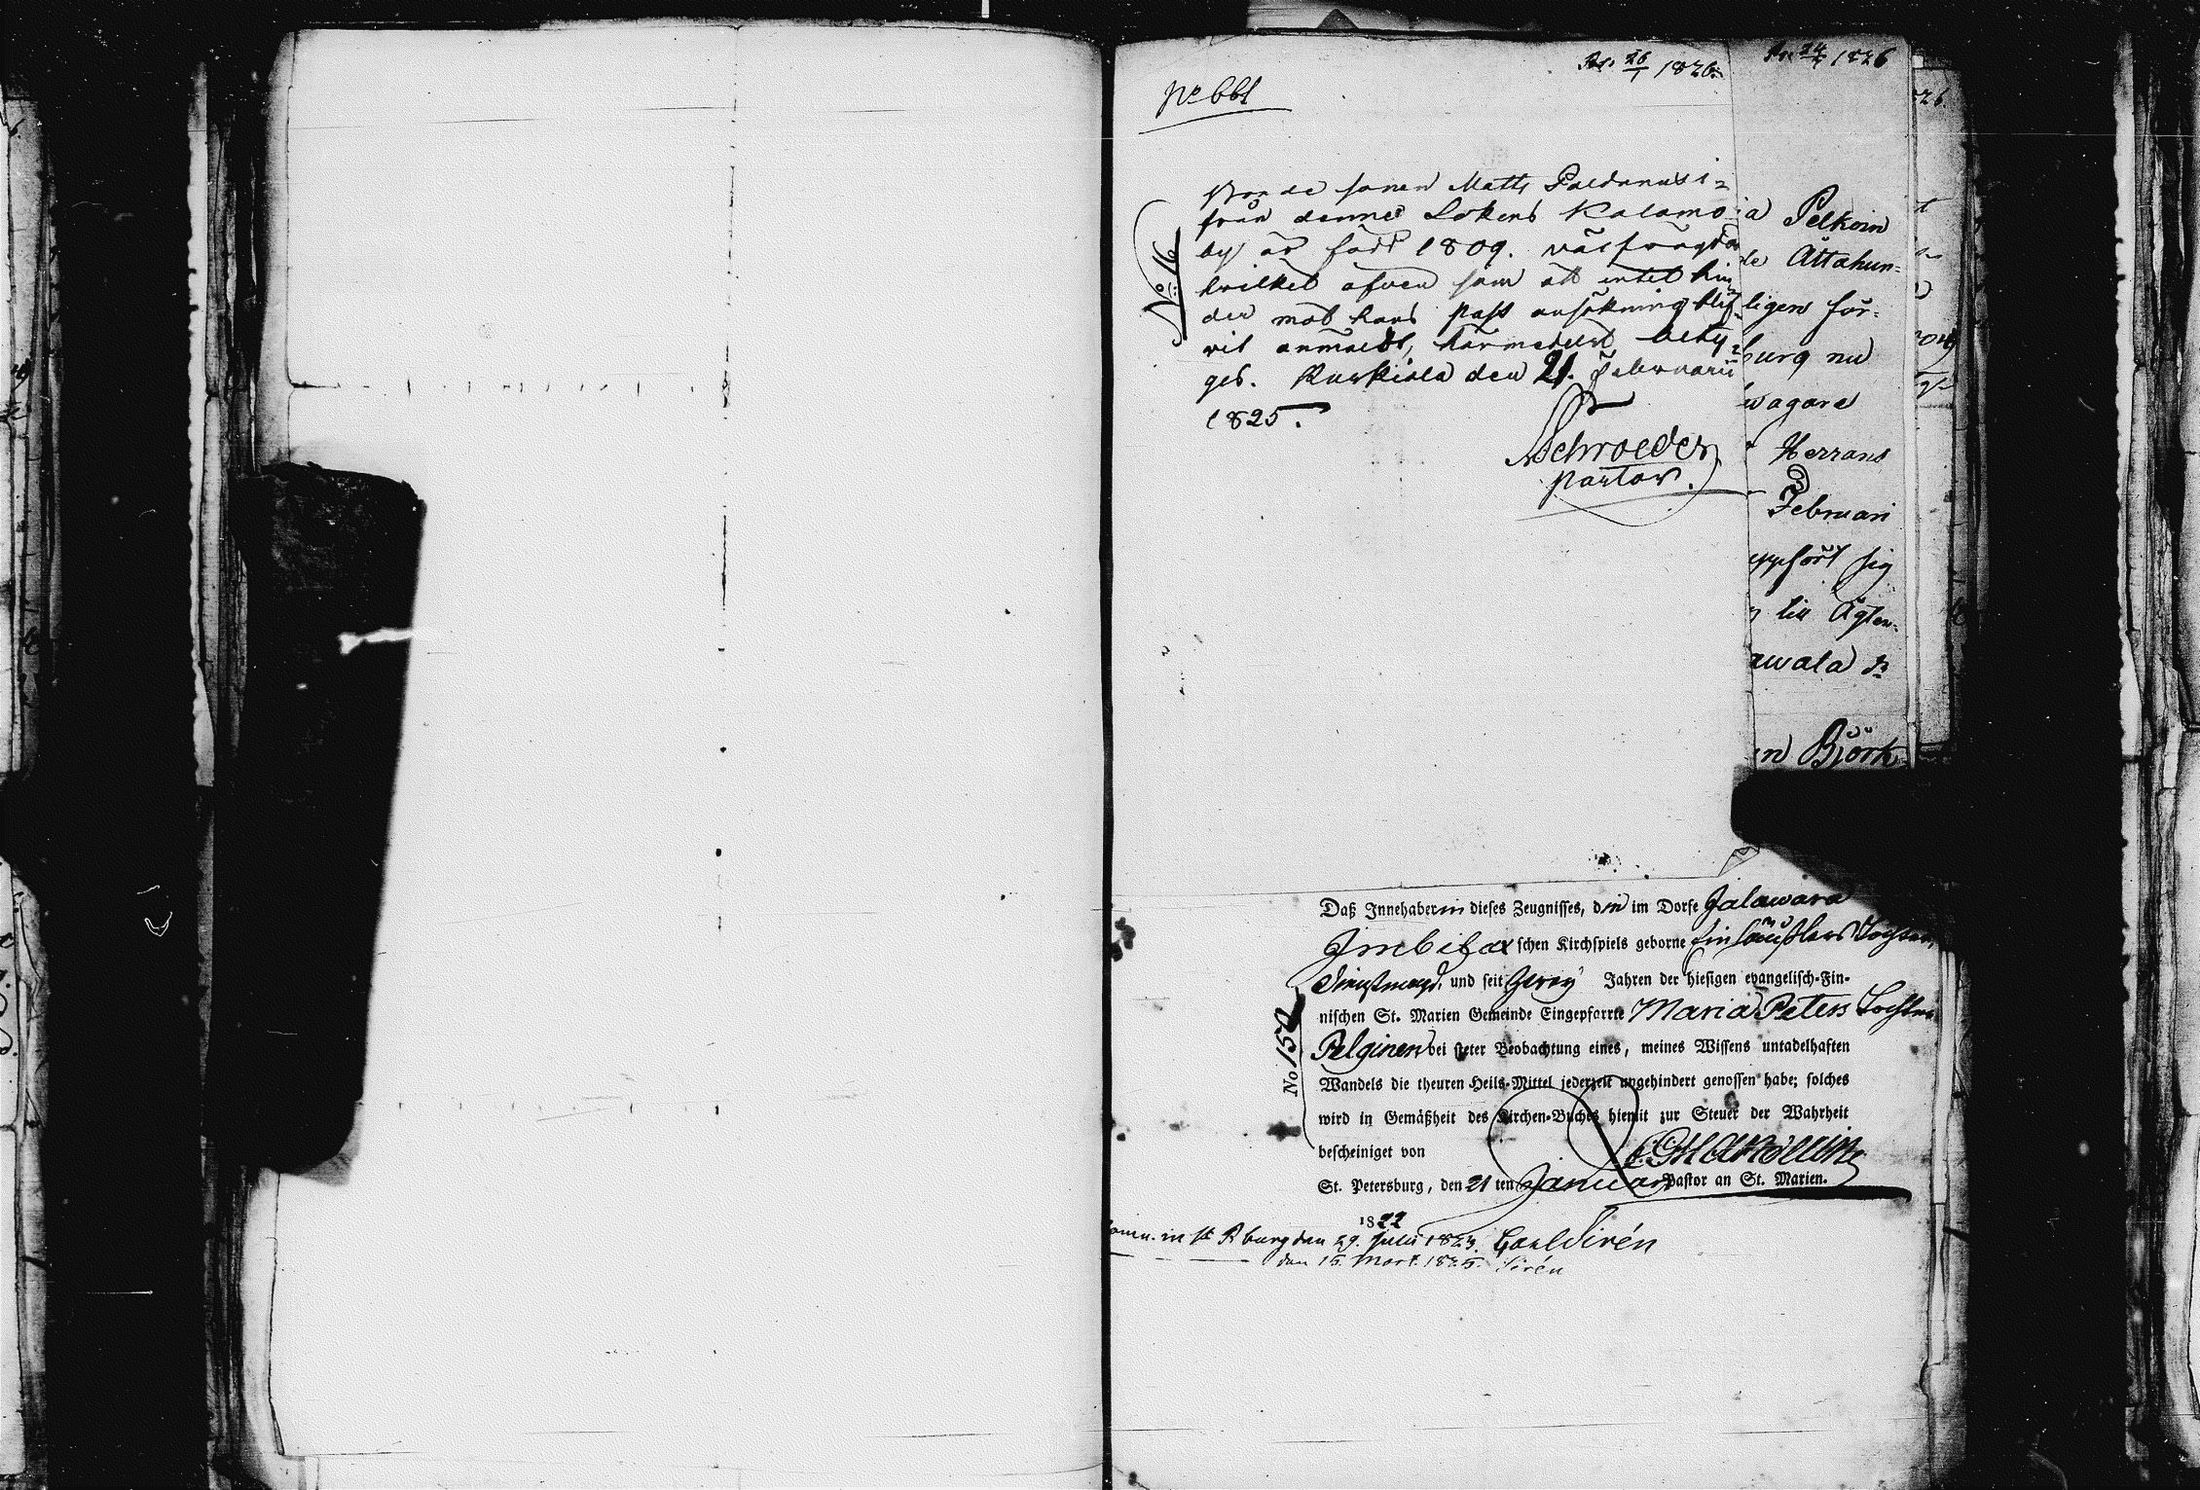 Pr. 26/1 1826.
No 661
No 16
Bonde sonen Matts Paldanus i=
från denne Sokens Kalamo
by är född 1809. väl frägdad
hvilket äfven som att intet hin=
der mot hans pass ansökning blif=
vit anmäldt, härmedelst bety=
ges. Ruskiala den 21. Februarii
1825.
Schroeder
pastor.
Pr. 24/1 1826
a Pelkoin
de Åttahun=
ligen för=
burg nu
wagare
Herrans
Februari
uppfört sig
till Ägten=
awala Sn
n Björk
No 152
Daß Innehaberin dieses Zeugnisses, die im Dorfe Jalawara
Imbilax schen Kirchspiels geborne Einhäußlers Tochter,
Dienstmagd, und seit Zwey Jahren der hiesigen evangelisch-Fin-
nischen St. Marien Gemeinde Eingepfarrte Maria Peters Tochter
Pelginen bei steter Beobachtung eines, meines Wissens untadelhaften
Wandels die theuren Heils-Mittel jederzeit ungehindert genossen habe; solches
wird in Gemäßheit des Kirchen-Buches hiemit zur Steuer der Wahrheit
bescheiniget von
St. Petersburg, den 21 ten Januar Pastor an St. Marien.
1822
comm. in St. P burg den 29. Julii 1823. Carl Sirén
den 15. Mart. 1825. Sirén